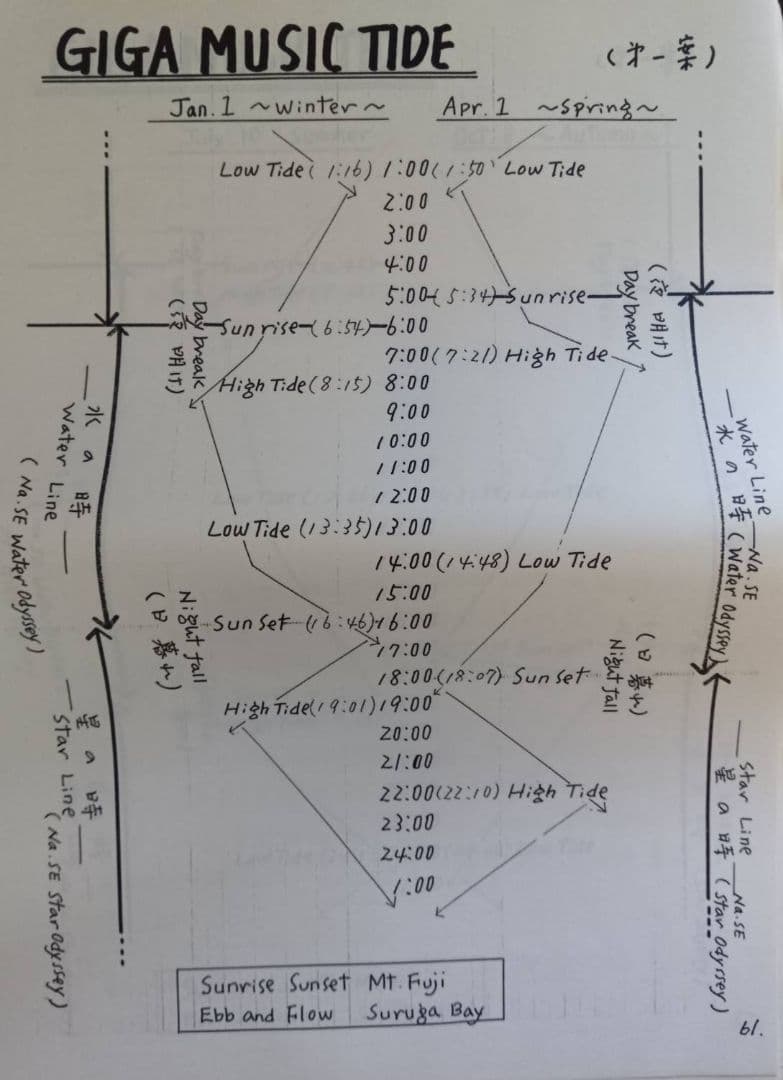 GIGA MUSIC TIDE
(才一葉)
Jan.1 ~Winter~
Apr.1 ~Spring~
Low Tide (1:16) 1:00 (1:50) Low Tide
2:00
3:00
4:00
5:00-(5:34)-Sunrise
Daybreak
(夜明け)
Sunrise-(6:54)-6:00
Daybreak
(夜明け)
7:00 (7:21) High Tide
High Tide (8:15) 8:00
9:00
10:00
11:00
12:00
Low Tide (13:35) 13:00
14:00 (14:48) Low Tide
15:00
Sun Set-(16:46)-16:00
Night fall
(日暮れ)
17:00
18:00-(18:07) Sun Set
Night fall
(日暮れ)
High Tide (19:01) 19:00
20:00
21:00
22:00 (22:10) High Tide
23:00
24:00
1:00
水の時
Water Line
(Na.SE Water Odyssey)
星の時
Star Line
(Na.SE Star Odyssey)
Water Line Na.SE
水の時 (Water Odyssey)
Star Line Na.SE
星の時 (Star Odyssey)
Sunrise Sunset Mt. Fuji
Ebb and Flow Suruga Bay
61.